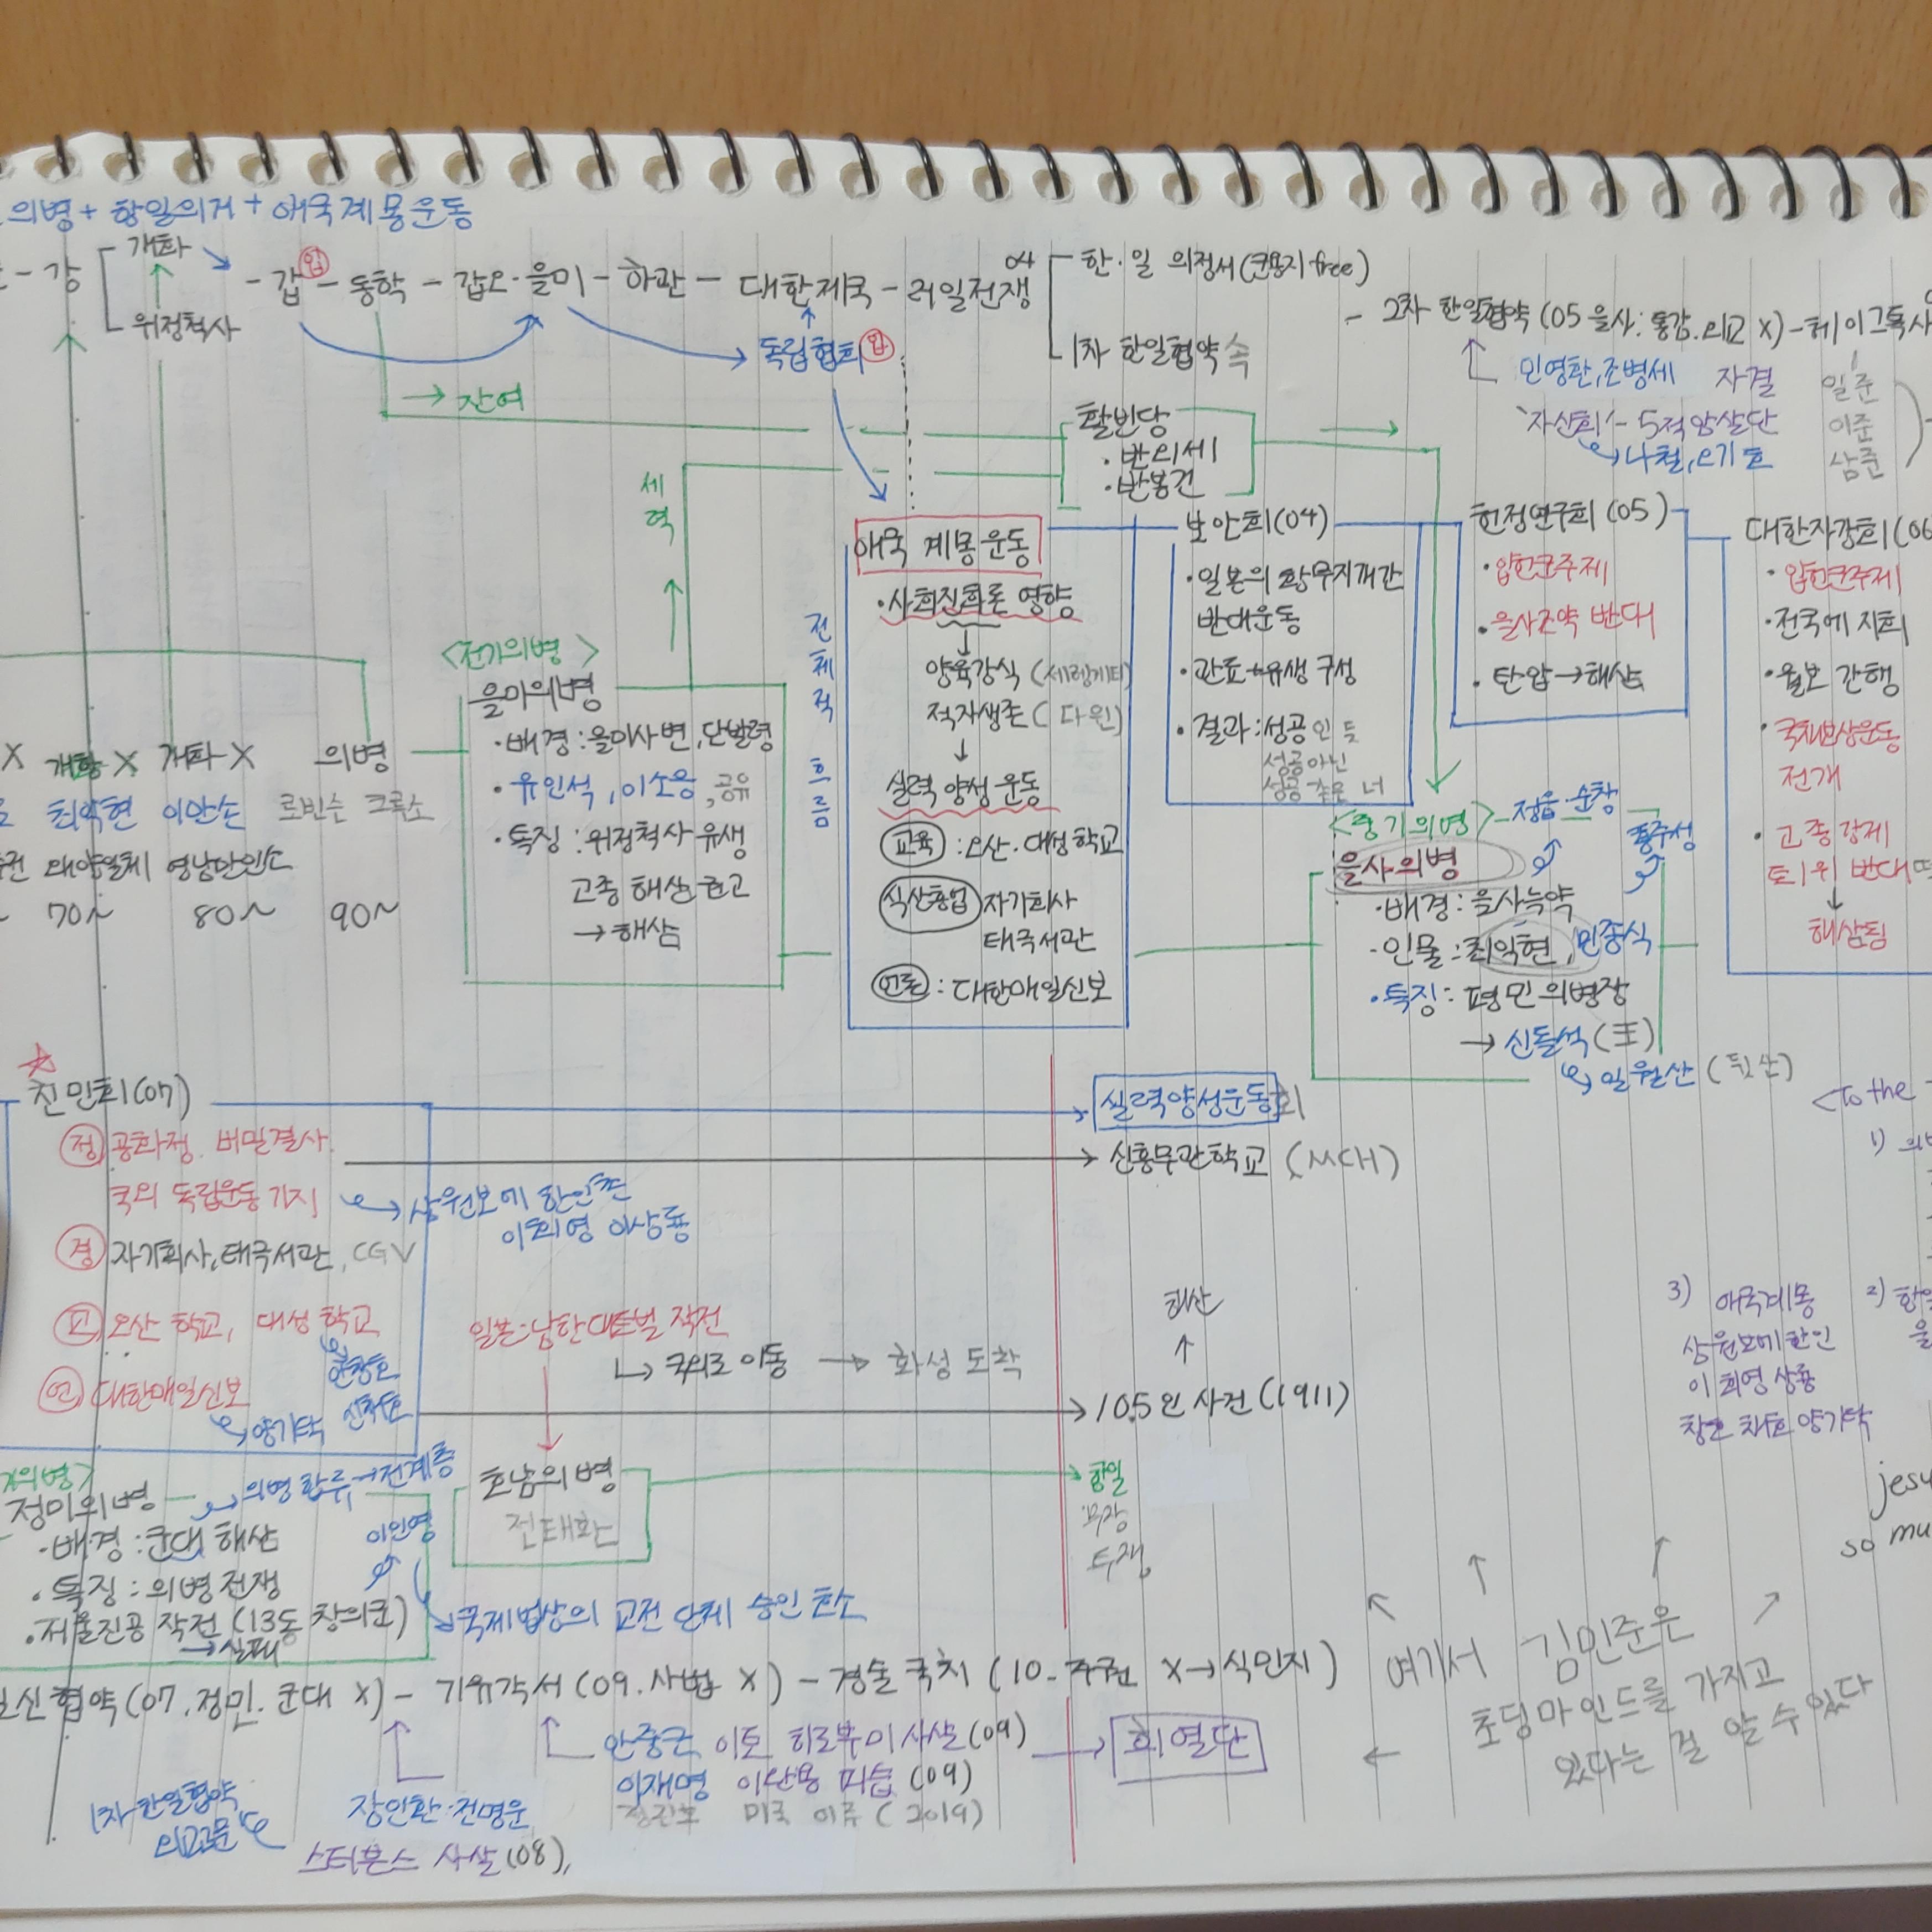 의병 + 항일의거 + 애국계몽운동
- 강
개화
위정척사
- 갑 - 동학 - 갑오·을미 - 하관 - 대한제국 - 러일전쟁
입
04
한·일 의정서(군용지 free)
1차 한일협약 속
- 2차 한일협약 (05 을사: 통감.외교 X) - 헤이그특사
독립협회
입
→ 잔여
민영환, 조병세 자결
'자신회' - 5적암살단
나철, 오기호
일준
이준
삼준
활빈당
·반외세
·반봉건
세력
전체적 흐름
애국 계몽 운동
·사회진화론 영향
↓
양육강식 (세렝게티)
적자생존 (다윈)
↓
실력 양성 운동
교육 : 오산·대성학교
식산흥업 자기회사
태극서관
언론 : 대한매일신보
보안회(04)
·일본의 황무지개간
반대운동
·관료+유생 구성
·결과 : 성공인 듯
성공아닌
성공 같은 너
헌정연구회 (05)
·입헌군주제
·을사조약 반대
·탄압 → 해산
대한자강회 (06
·입헌군주제
·전국에 지회
·월보 간행
·국채보상운동
전개
·고종강제
퇴위 반대
↓
해산됨
<전기의병>
을미의병
·배경 : 을미사변, 단발령
·유인석, 이소응, 공유
·특징 : 위정척사 유생
고종 해산 권고
→ 해산
X 개항 X 개화 X 의병
최익현 이만손 로빈슨 크루소
왜양일체 영남만인소
70~ 80~ 90~
<중기의병> - 정읍·순창
홍주성
을사의병
·배경 : 을사늑약
·인물 : 최익현, 민종식
·특징 : 평민 의병장
→ 신돌석 (王)
일월산 (뒷산)
☆
신민회(07)
정 공화정. 비밀결사.
국외 독립운동 기지
삼원보에 한인촌
이회영 이상룡
경 자기회사, 태극서관, CGV
교 오산 학교, 대성 학교
안창호
언 대한매일신보
양기탁 신채호
실력양성운동회
신흥무관학교 (MCH)
<To the
1) 의병
일본 : 남한 대토벌 작전
↳ 국외로 이동 → 화성 도착
해산
↑
105인 사건(1911)
3) 애국계몽
삼원보에 한인
이회영 상룡
창호 채호 양기탁
2) 항일
을
정미의병
의병 합류 → 전계층
·배경 : 군대 해산
·특징 : 의병 전쟁
이인영
·서울진공 작전 (13도 창의군)
→ 실패
국제법상의 교전 단체 승인 호소
호남의병
전태환
항일
무장
투쟁
jesu
so mu
신협약(07.정미.군대 X) - 기유각서 (09.사법 X) - 경술국치 (10-주권 X → 식민지)
안중근 이토 히로부미 사살(09)
이재명 이완용 피습 (09)
정진호 미국 이주 (2019)
의열단
장인환·전명운
스티븐스 사살(08),
1차 한일협약
외교고문
여기서 김민준은
초딩마인드를 가지고
있다는 걸 알 수 있다